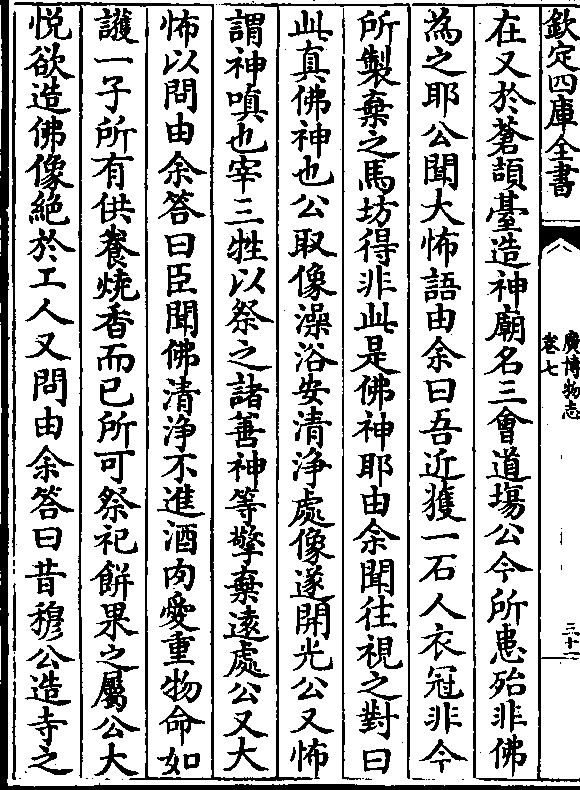 欽定四庫全書
廣博物志
卷七
三十二
在又於蒼頡臺造神廟名三會道塲公今所患殆非佛
為之耶公聞大怖語由余曰吾近獲一石人衣冠非今
所製棄之馬坊得非此是佛神耶由余聞往視之對曰
此真佛神也公取像澡浴安清淨處像遂開光公又怖
謂神嗔也宰三牲以祭之諸善神等擎棄逺處公又大
怖以問由余答曰臣聞佛清浄不進酒肉愛重物命如
䕶一子所有供養燒香而已所可祭祀餅果之屬公大
悦欲造佛像絶於工人又問由余答曰昔穆公造寺之